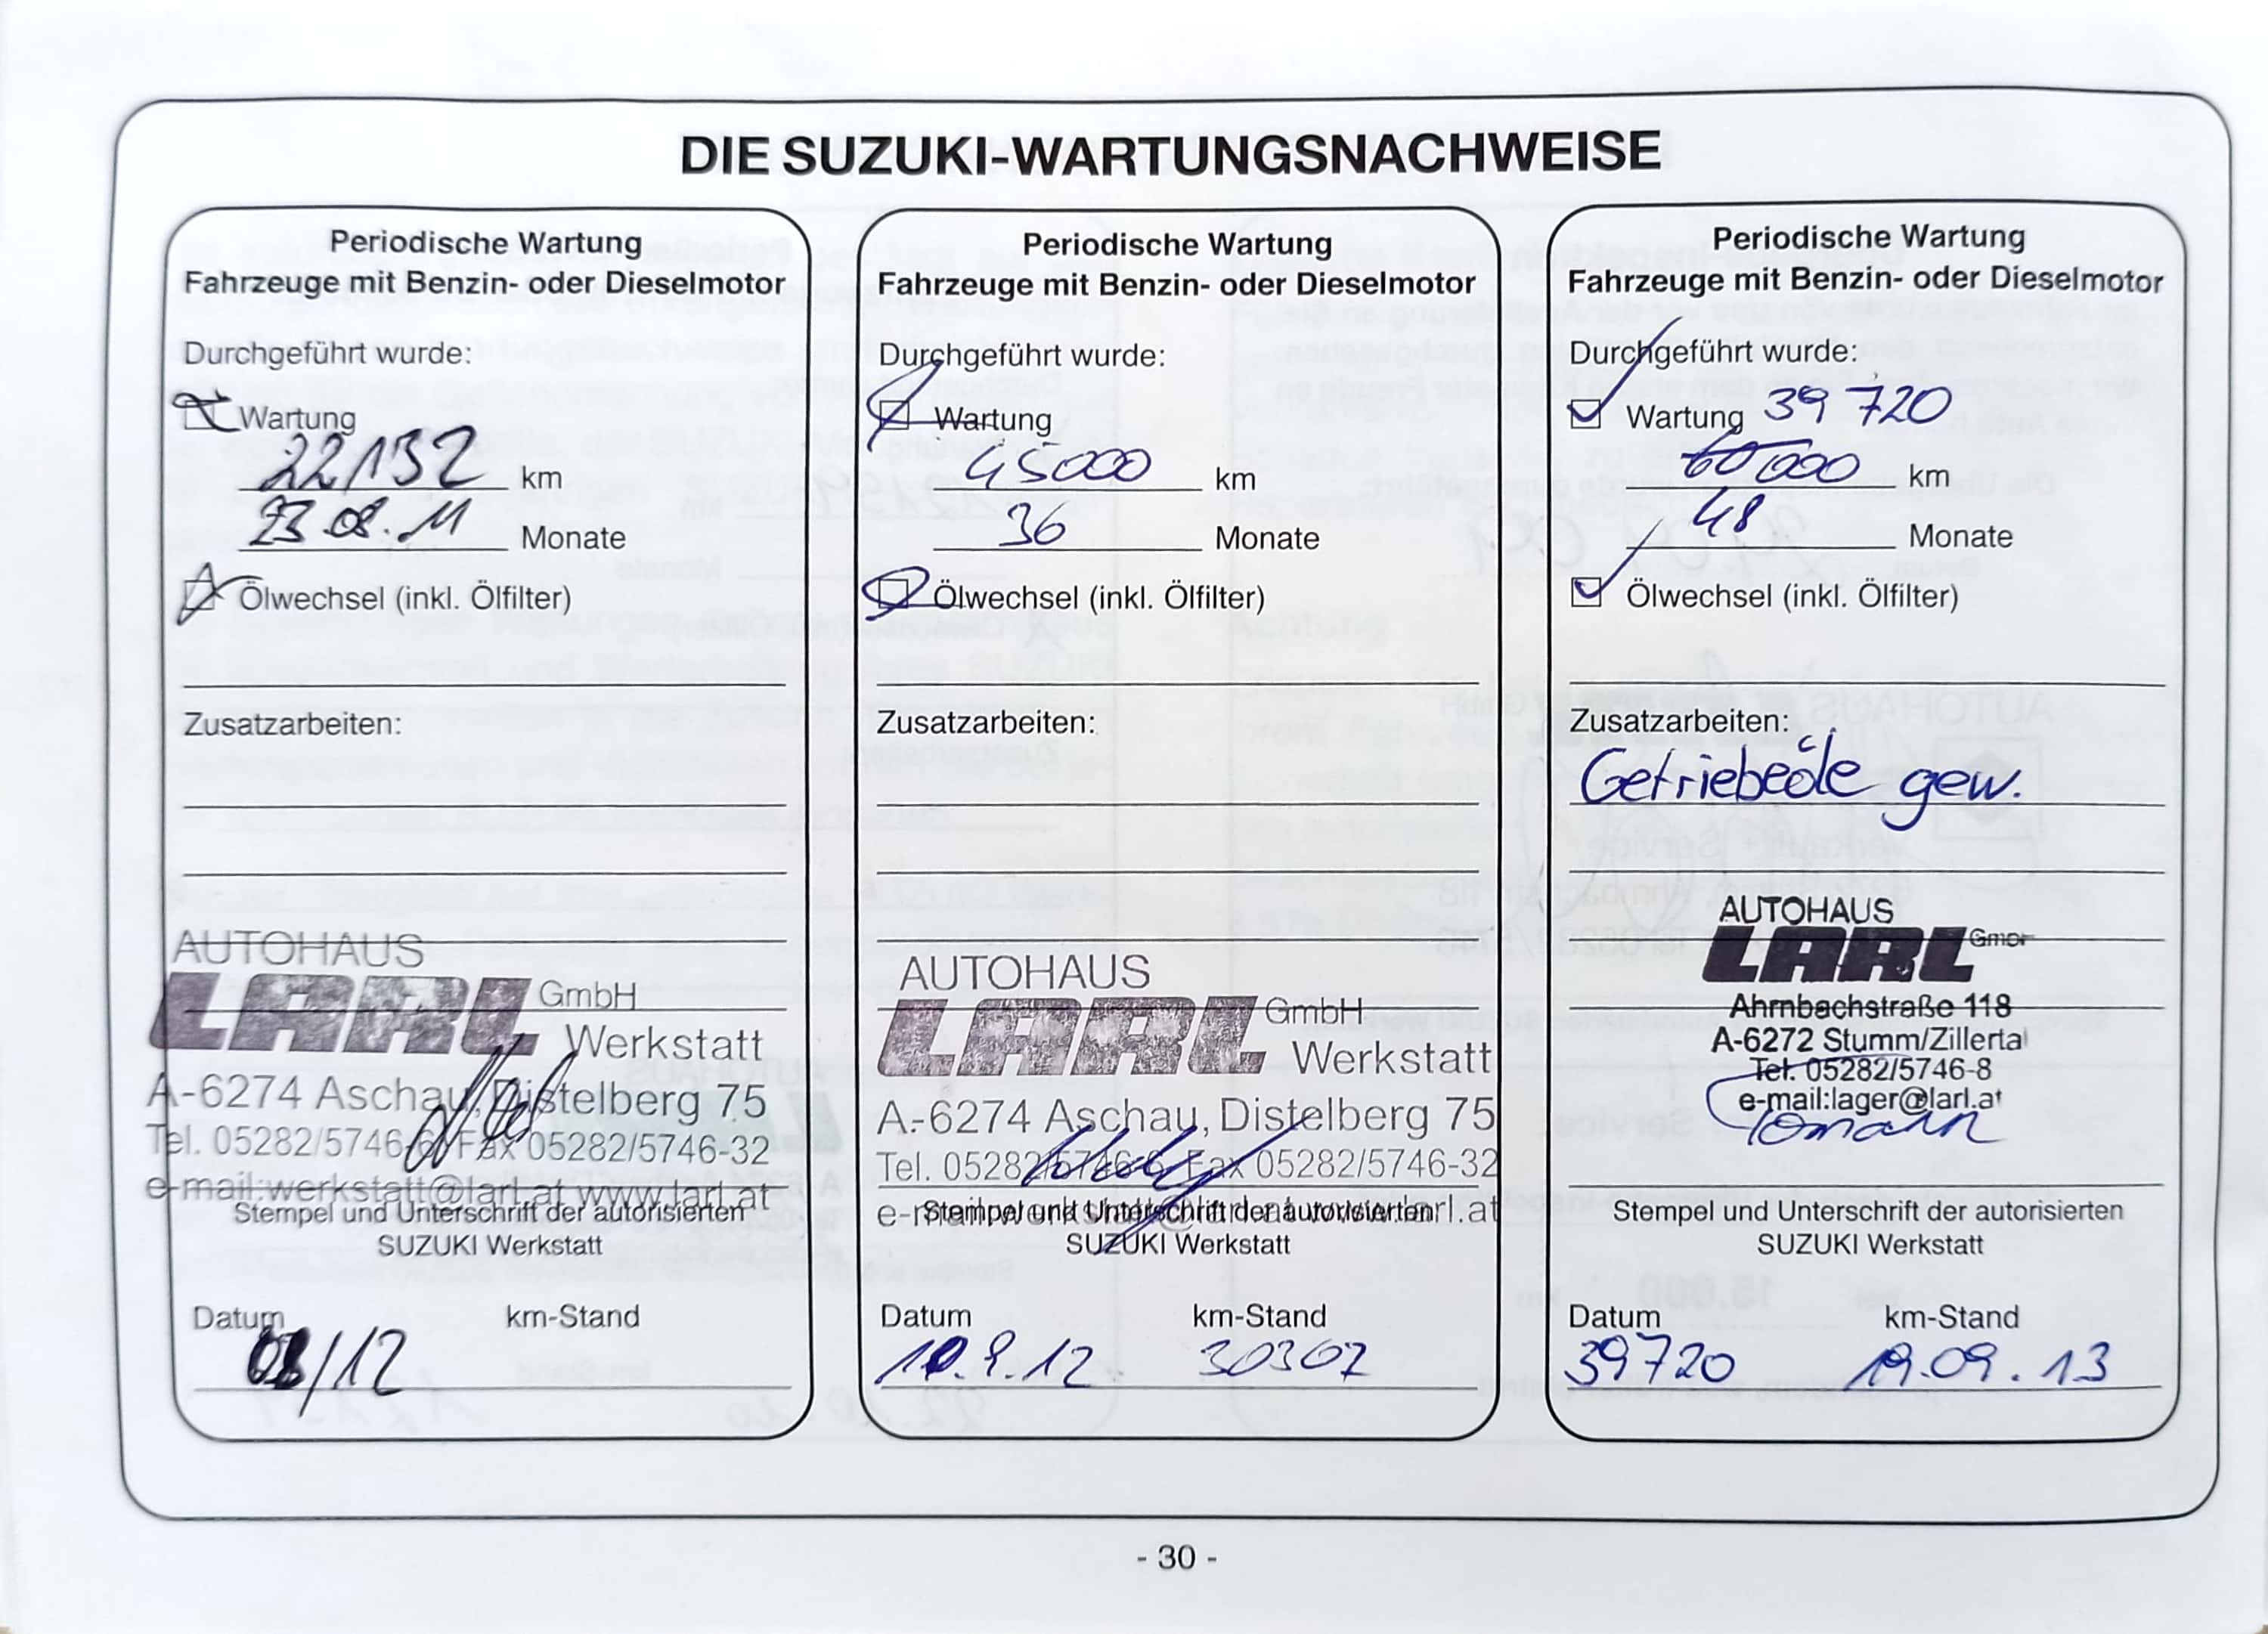 DIE SUZUKI-WARTUNGSNACHWEISE
Periodische Wartung
Fahrzeuge mit Benzin- oder Dieselmotor
Durchgeführt wurde:
Wartung
22152 km
23.08.11 Monate
Ölwechsel (inkl. Ölfilter)
Zusatzarbeiten:
AUTOHAUS
LARL GmbH
Werkstatt
A-6274 Aschau, Distelberg 75
Tel. 05282/5746-6 Fax 05282/5746-32
e-mail:werkstatt@larl.at www.larl.at
Stempel und Unterschrift der autorisierten
SUZUKI Werkstatt
Datum km-Stand
08/12
Periodische Wartung
Fahrzeuge mit Benzin- oder Dieselmotor
Durchgeführt wurde:
Wartung
45000 km
36 Monate
Ölwechsel (inkl. Ölfilter)
Zusatzarbeiten:
AUTOHAUS
LARL GmbH
Werkstatt
A-6274 Aschau, Distelberg 75
Tel. 05282/5746-6 Fax 05282/5746-32
e-mail:werkstatt@larl.at www.larl.at
Stempel und Unterschrift der autorisierten
SUZUKI Werkstatt
Datum km-Stand
10.9.12 30307
Periodische Wartung
Fahrzeuge mit Benzin- oder Dieselmotor
Durchgeführt wurde:
Wartung 39720
60000 km
48 Monate
Ölwechsel (inkl. Ölfilter)
Zusatzarbeiten:
Getriebeöle gew.
AUTOHAUS
LARL GmbH
Ahrnbachstraße 118
A-6272 Stumm/Zillertal
Tel. 05282/5746-8
e-mail:lager@larl.at
Stempel und Unterschrift der autorisierten
SUZUKI Werkstatt
Datum km-Stand
39720 19.09.13
- 30 -